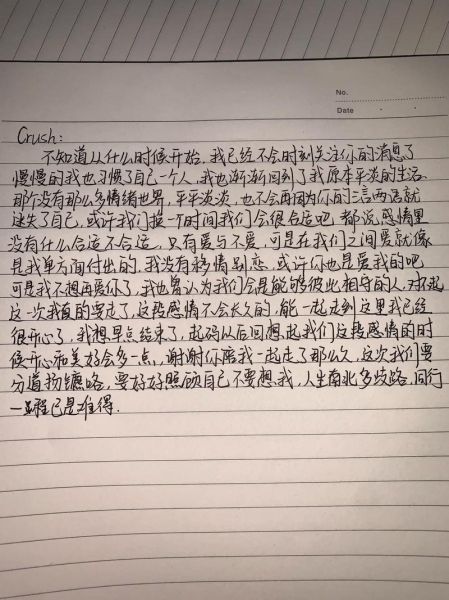 No.
Date
Crush:
不知道从什么时候开始，我已经不会时刻关注你的消息了
慢慢的我也习惯了自己一个人，我也渐渐回到了我原本平淡的生活
那个没有那么多情绪世界，平平淡淡，也不会再因为你的三言两语就
迷失了自己，或许我们换一个时间我们会很合适吧，都说感情里
没有什么合适不合适，只有爱与不爱，可是在我们之间爱就像
是我单方面付出的，我没有移情别恋，或许你也是爱我的吧
可是我不想再爱你了，我也曾认为我们会是能够彼此相守的人，对不起
这一次我真的要走了，这段感情不会长久的，能一起走到这里我已经
很开心了，我想早点结束了，起码以后回想起我们这段感情的时
候开心和美好会多一点，谢谢你陪我一起走了那么久，这次我们要
分道扬镳咯，要好好照顾自己不要想我，人生南北多歧路，同行
一程已是难得.